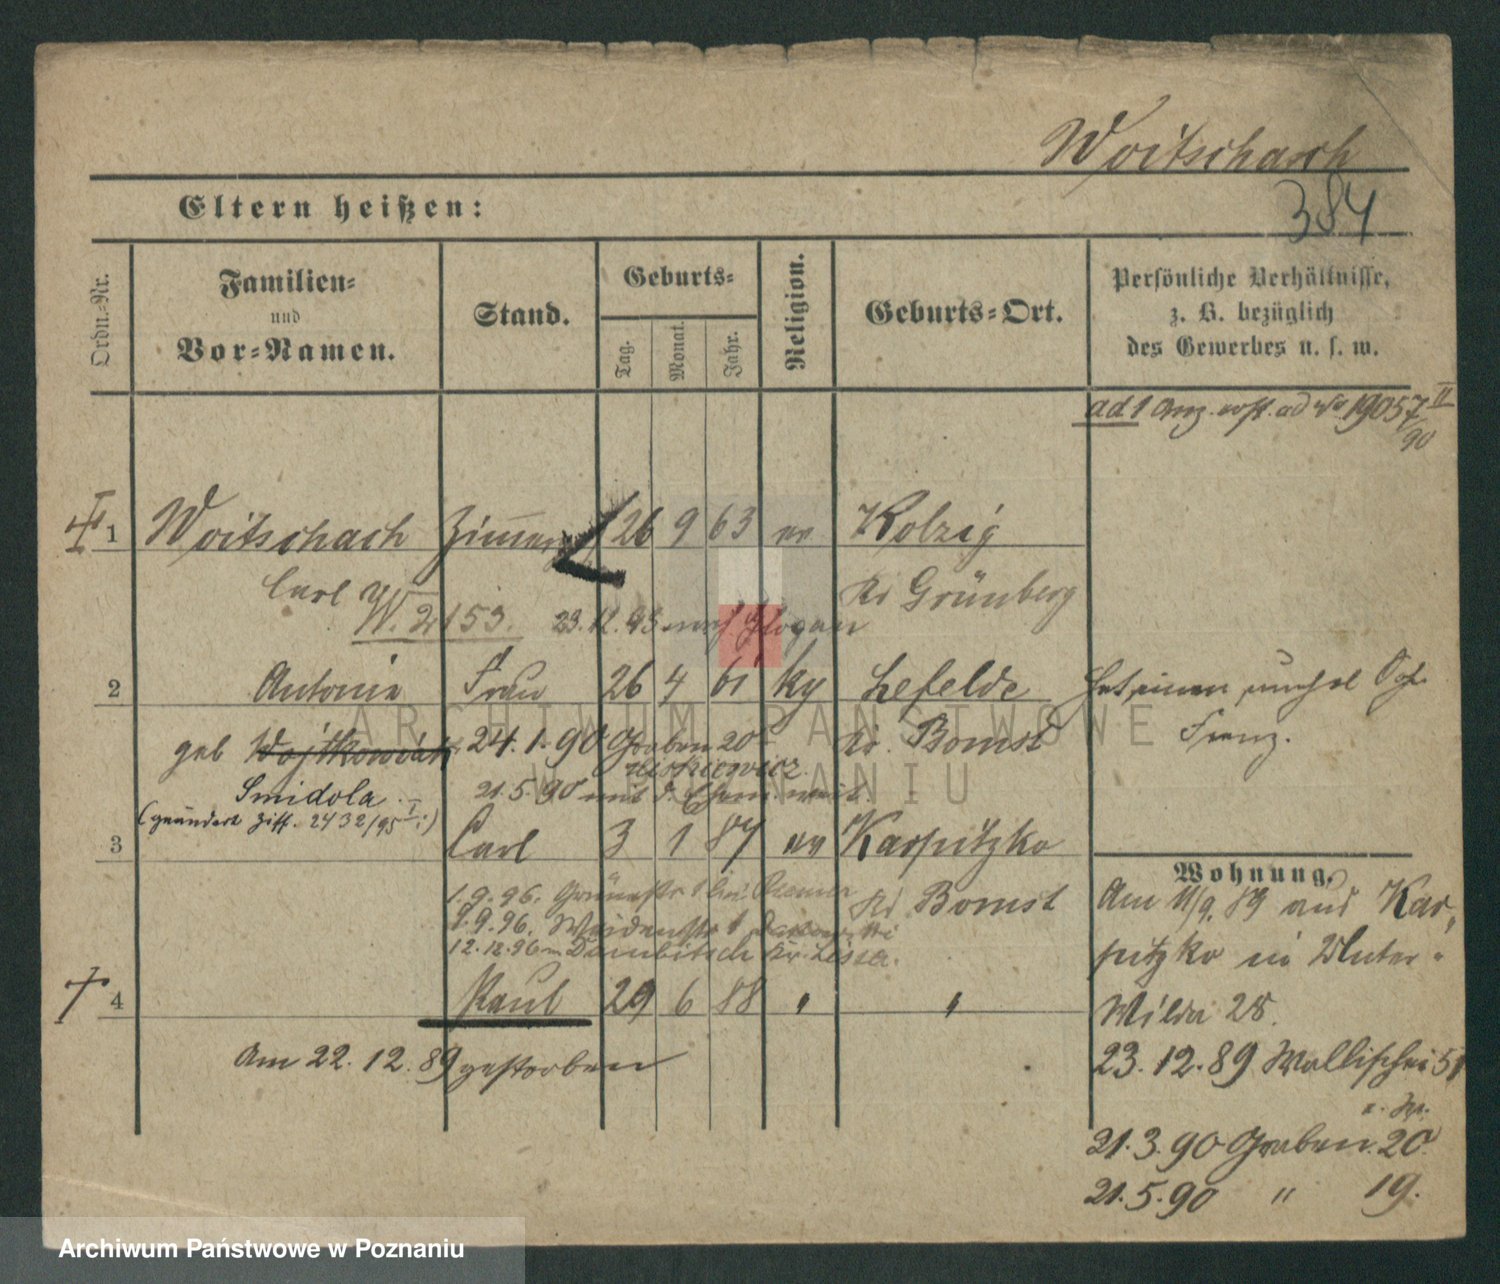 Woitschach
384
Eltern heißen:
Ordn.-Nr.
Familien-
und
Vor-Namen.
Stand.
Geburts-
Tag.
Monat.
Jahr.
Religion.
Geburts-Ort.
Persönliche Verhältnisse,
z. B. bezüglich
des Gewerbes u. s. w.
ad 1 Anz. ad No 19057 II/90
1 Woitschach Zimmerg. 26 9 63 ev Kolzig
Carl Kr Grünberg
W. 2153. 23.12.93 nach Glogau
2 Antonie Frau 26 4 61 kg Lefelde
Hat einen
Franz.
geb Wojtkowiak 24.1.90 Graben 20 Kr. Bomst
21.5.90 mit d. Ehem.
Smidola
(geändert Ziff. 2432/95 I:)
3 Carl 3 1 87 ev Karpitzko
1.9.96. 1 bei
Kr Bomst
9.9.96. Weidenstr 1
12.12.96 n Dambitsch Kr. Lissa.
4 Paul 29 6 88 " "
Am 22.12.89 gestorben
Wohnung.
Am 11/9.89 aus Kar-
pitzko in Unter-
Wilda 28.
23.12.89 Wallischei 51
21.3.90 Graben 20
21.5.90 " 19.
ARCHIWUM PAŃSTWOWE
W POZNANIU
Archiwum Państwowe w Poznaniu